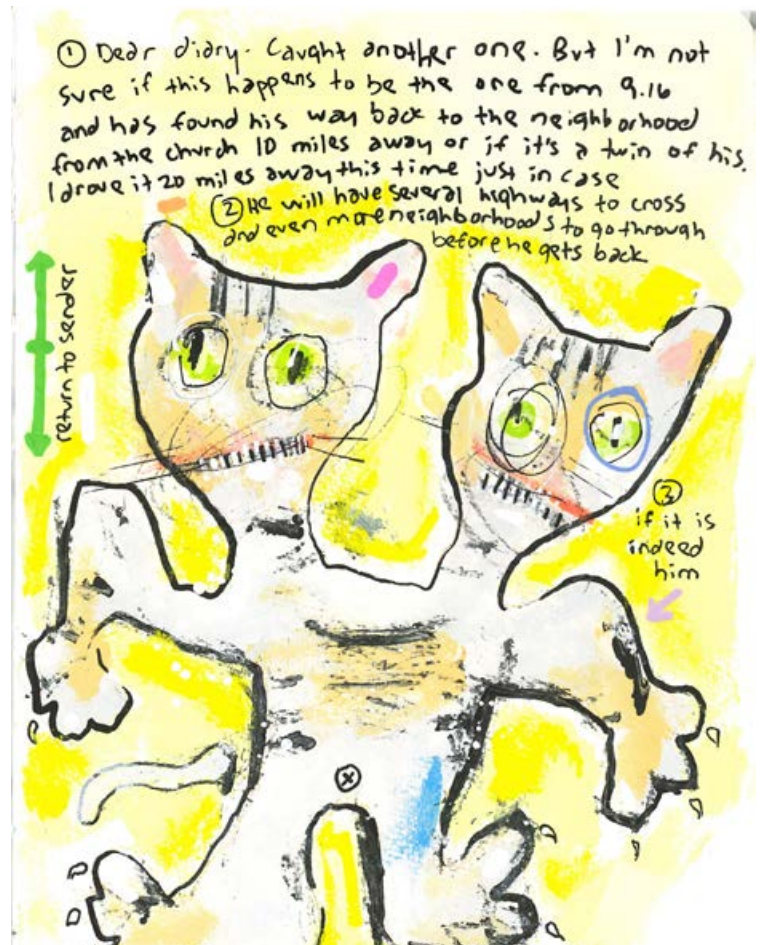 ① Dear diary. Caught another one. But I'm not
sure if this happens to be the one from 9.16
and has found his way back to the neighborhood
from the church 10 miles away or if it's a twin of his.
I drove it 20 miles away this time just in case
② He will have several highways to cross
and even more neighborhoods to go through
before he gets back
return to sender
③
if it is
indeed
him
ⓧ